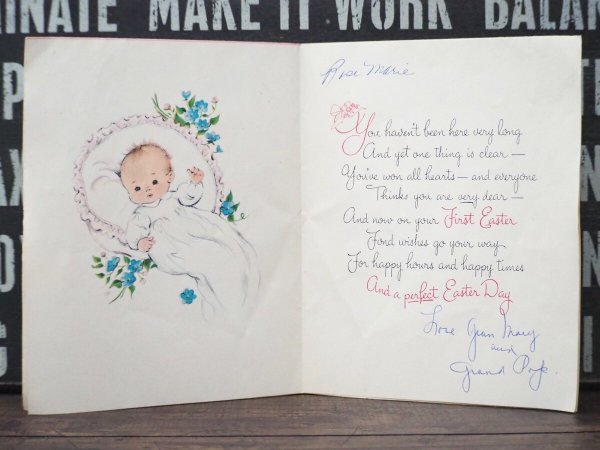 INATE MAKE IT WORK BALAN
Rose Marie
You haven't been here very long
And yet one thing is clear —
You've won all hearts — and everyone
Thinks you are very dear —
And now on your First Easter
Fond wishes go your way
For happy hours and happy times
And a perfect Easter Day
Love
and
Grand